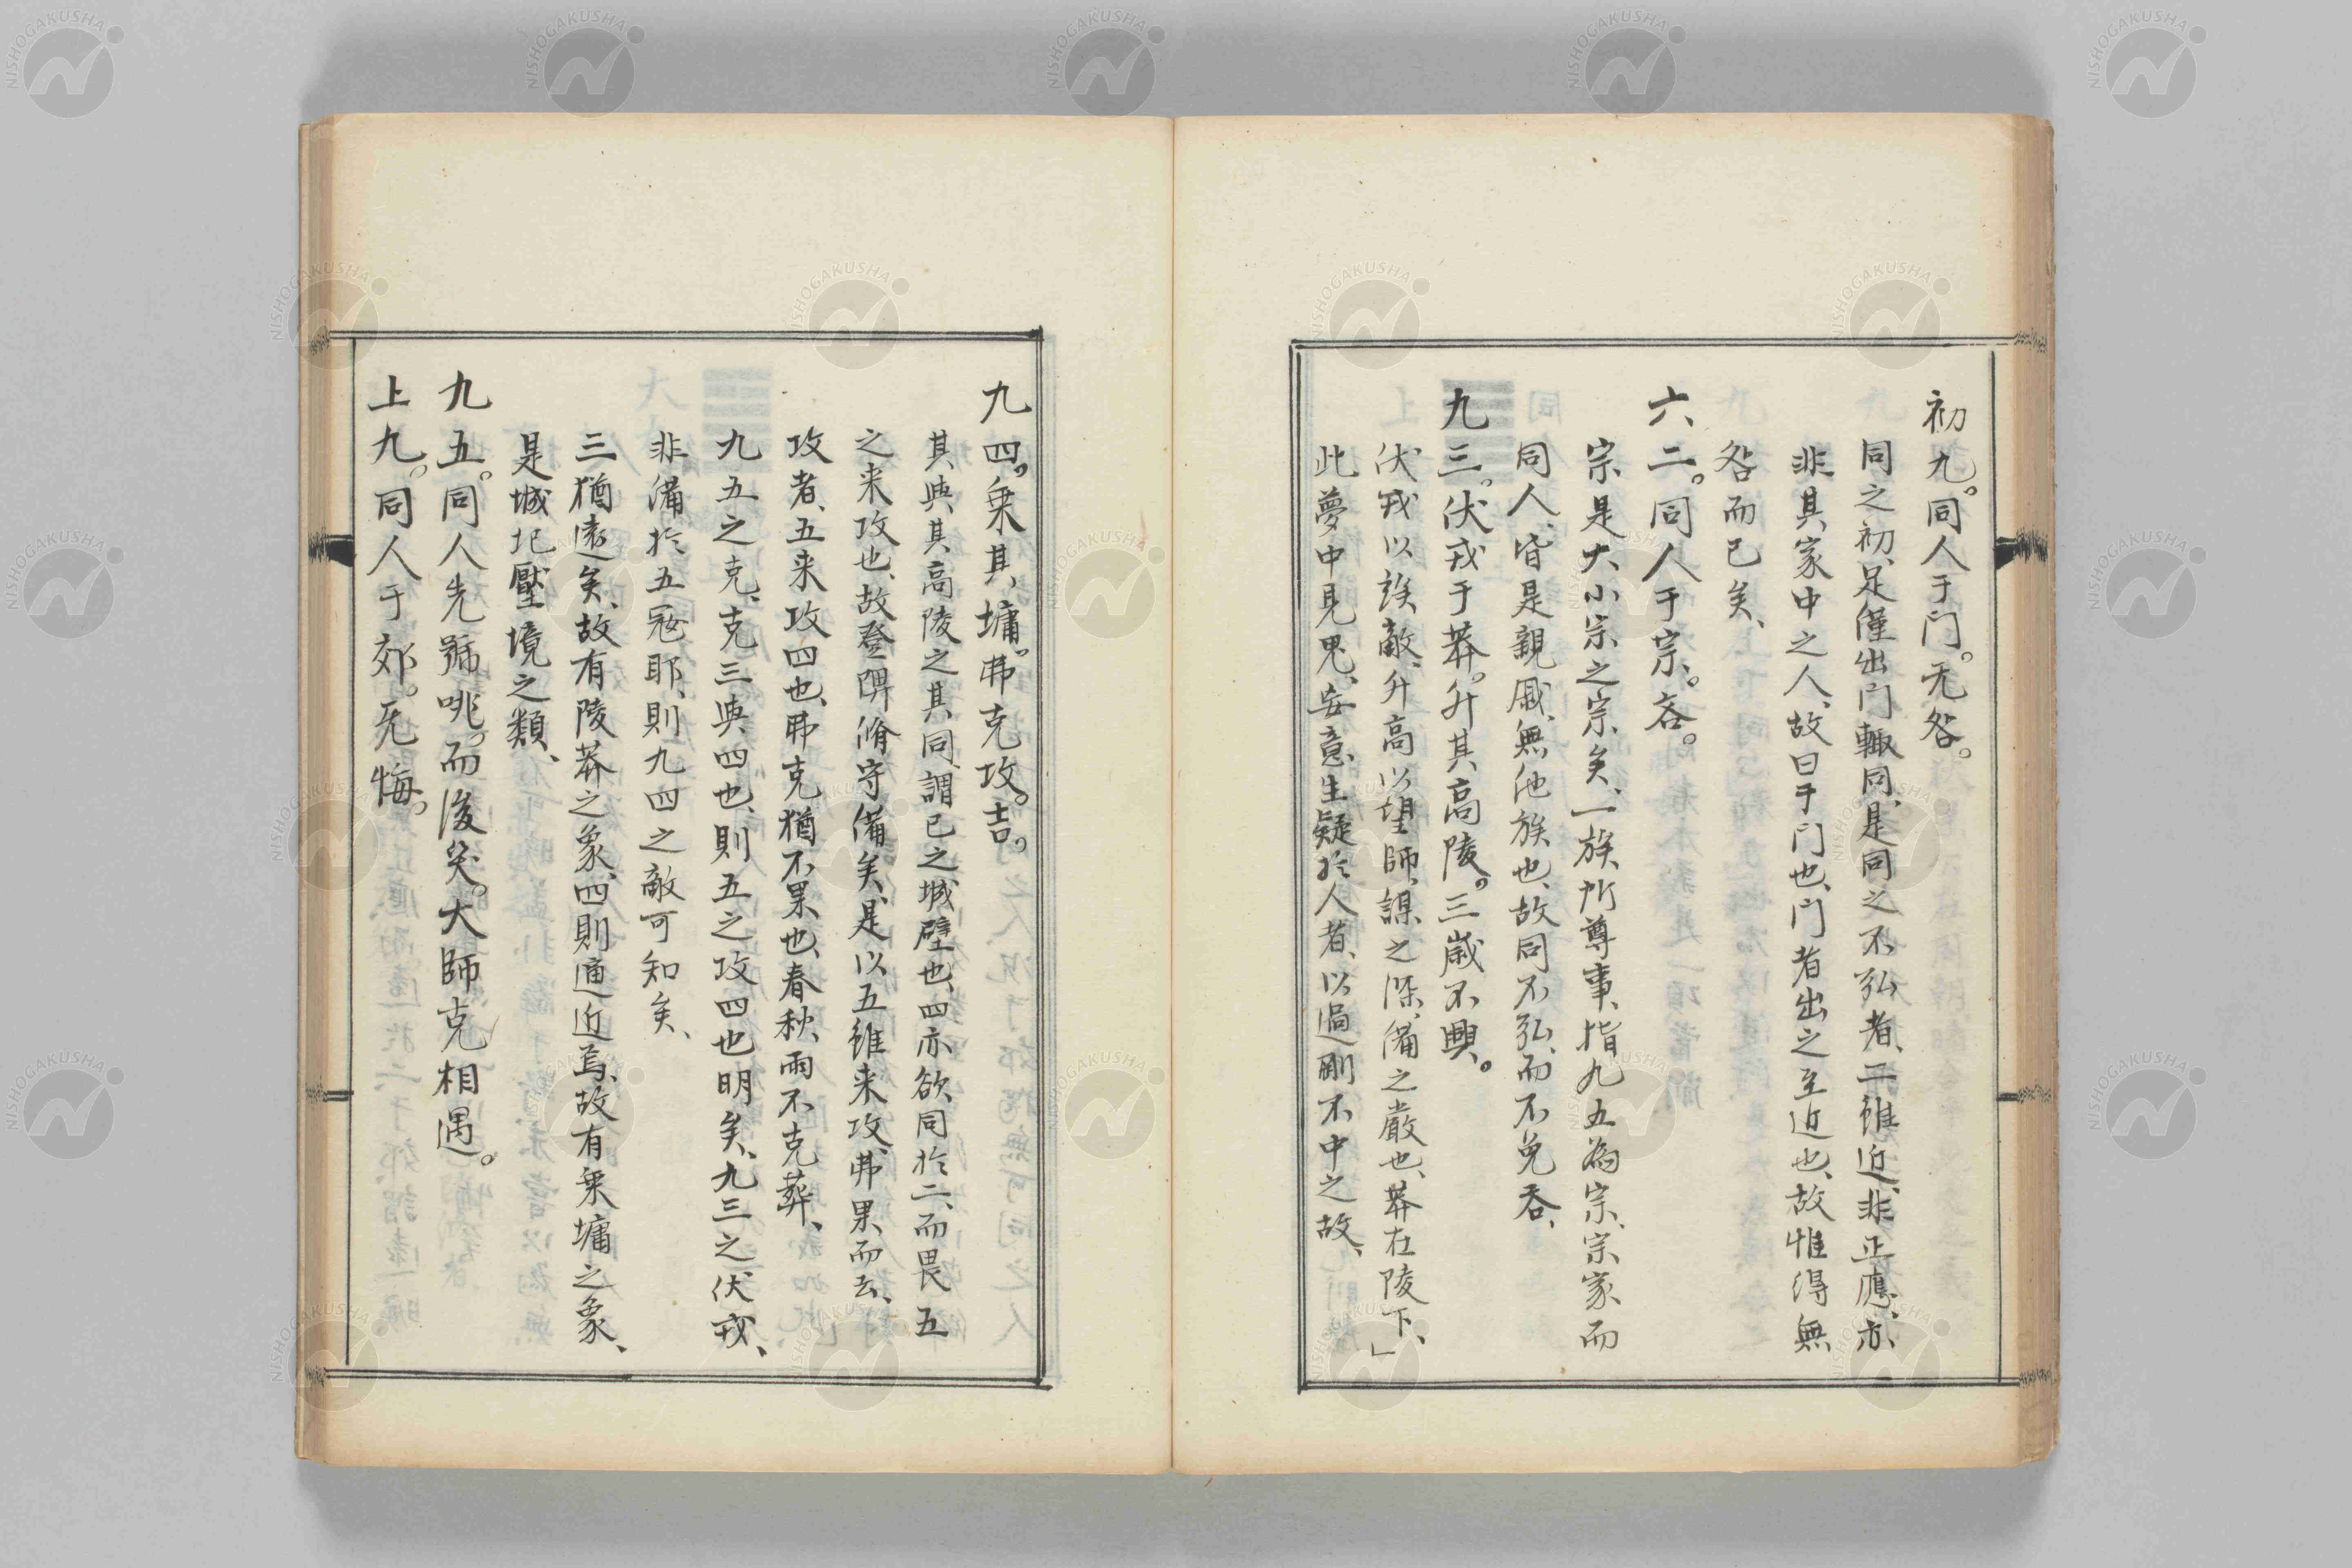 初九。同人于门。无咎。
同之初、足僅出門輙同、是同之不弘者、二雖近、非正應、亦
非其家中之人、故曰于门也、门者出之至近也、故惟得無
咎而已矣、
六二。同人于宗。吝。
宗是大小宗之宗矣、一族所尊事、指九五為宗、宗家而
同人、皆是親戚、無他族也、故同不弘、而不免吝、
九三。伏戎于莽。升其高陵。三歳不興。
伏戎以誘敵、升高以望師、謀之深、備之嚴也、莽在陵下、」
此夢中見鬼、妄意生疑於人者、以過剛不中之故、
九四。乗其墉。弗克攻。吉。
其與其高陵之其同、謂已之城壁也、四亦欲同於二、而畏五
之来攻也、故登陴脩守備矣、是以五雖来攻、弗果、而去、
攻者、五来攻四也、弗克猶不果也、春秋、雨不克葬、
九五之克、克三與四也、則五之攻四也明矣、九三之伏戎、
非備於五寇耶、則九四之敵可知矣、
三猶遠矣、故有陵莽之象、四則逼近焉、故有乗墉之象、
是城圯壓境之類、
九五。同人先號咷。而後笑。大師克相遇。
上九。同人于郊。无悔。
NISHOGAKUSHA